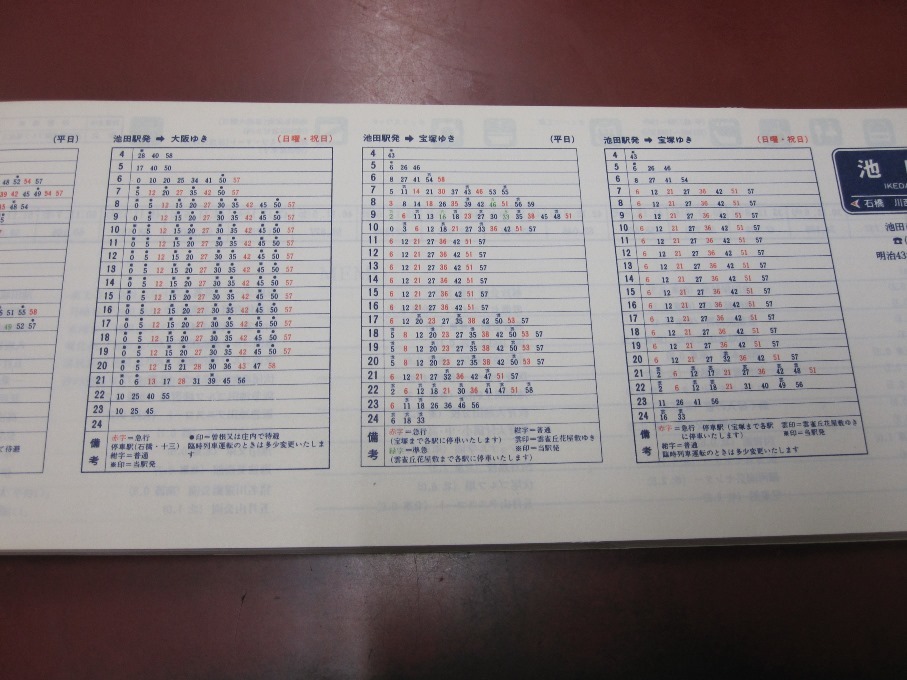 (平日)
池田駅発 ➡ 大阪ゆき (日曜・祝日)
4 28 40 58
5 17 40 50
6 0 10 20 25 34 41 50
7 5 12 20 27 35 42 50 57
8 0 5 12 15 20 27 30 35 42 45 50 57
9 0 5 12 15 20 27 30 35 42 45 50 57
10 0 5 12 15 20 27 30 35 42 45 50 57
11 0 5 12 15 20 27 30 35 42 45 50 57
12 0 5 12 15 20 27 30 35 42 45 50 57
13 0 5 12 15 20 27 30 35 42 45 50 57
14 0 5 12 15 20 27 30 35 42 45 50 57
15 0 5 12 15 20 27 30 35 42 45 50 57
16 0 5 12 15 20 27 30 35 42 45 50 57
17 0 5 12 15 20 27 30 35 42 45 50 57
18 0 5 12 15 20 27 30 35 42 45 50 57
19 0 5 12 15 20 27 30 35 42 45 50 57
20 0 5 12 15 21 28 30 36 43 47 58
21 0 6 13 17 28 31 39 45 56
22 10 25 40 55
23 10 25 45
24
備考
赤字=急行 ●印=曽根又は庄内で待避
停車駅(石橋・十三) 臨時列車運転のときは多少変更いたします
紺字=普通
※印=当駅発
池田駅発 ➡ 宝塚ゆき (平日)
4 43
5 6 26 46
6 8 27 41 54 58
7 5 11 14 21 30 37 43 46 53 55
8 3 8 14 18 26 35 39 42 51 56 59
9 2 6 11 13 16 18 23 27 30 33 35 38 45 48 51
10 0 3 6 12 18 21 27 33 36 42 51 57
11 6 12 21 27 36 42 51 57
12 6 12 21 27 36 42 51 57
13 6 12 21 27 36 42 51 57
14 6 12 21 27 36 42 51 57
15 6 12 21 27 36 42 51 57
16 6 12 21 27 36 42 51 57
17 6 12 20 23 27 35 38 42 50 53 57
18 5 8 12 20 23 27 35 38 42 50 53 57
19 5 8 12 20 23 27 35 38 42 50 53 57
20 5 8 12 20 23 27 35 38 42 50 53 57
21 6 12 21 27 32 36 42 47 51 57
22 2 6 12 18 21 30 36 41 47 51 58
23 6 11 18 26 36 46 56
24 6 18 33
備考
赤字=急行 紺字=普通
(宝塚まで各駅に停車いたします) 雲印=雲雀丘花屋敷ゆき
緑字=準急 ※印=当駅発
(雲雀丘花屋敷まで各駅に停車いたします)
池田駅発 ➡ 宝塚ゆき (日曜・祝日)
4 43
5 6 26 46
6 8 27 41 54
7 6 12 21 27 36 42 51 57
8 6 12 21 27 36 42 51 57
9 6 12 21 27 36 42 51 57
10 6 12 21 27 36 42 51 57
11 6 12 21 27 36 42 51 57
12 6 12 21 27 36 42 51 57
13 6 12 21 27 36 42 51 57
14 6 12 21 27 36 42 51 57
15 6 12 21 27 36 42 51 57
16 6 12 21 27 36 42 51 57
17 6 12 21 27 36 42 51 57
18 6 12 21 27 36 42 51 57
19 6 12 21 27 36 42 51 57
20 6 12 21 27 32 36 42 51 57
21 2 6 12 17 21 27 36 42 48 51
22 2 6 12 18 21 31 40 49 56
23 11 26 41 56
24 16 33
備考
赤字=急行 停車駅(宝塚まで各駅に停車いたします) 雲印=雲雀丘花屋敷ゆき
紺字=普通 ※印=当駅発
臨時列車運転のときは多少変更いたします
池
IKEDA
石橋 川西
池田
明治43